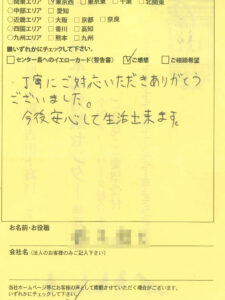 ○関東エリア ☑東京西 □東京東 □千葉 □北関東
○中部エリア □愛知
○近畿エリア □大阪 □京都 □奈良
○四国エリア □香川 □高知
○九州エリア □熊本 □九州
■いずれかにチェックして下さい。
□センター長へのイエローカード(警告書) ☑ご感想 □ご相談希望
丁寧にご対応いただきありがとう
ございました。
今後安心して生活出来ます。
お名前・お役職
会社名(法人のお客様のみご記入下さい)
当社ホームページ等にお客様の声として掲載させていただく場合がございます。
いずれかにチェックして下さい。